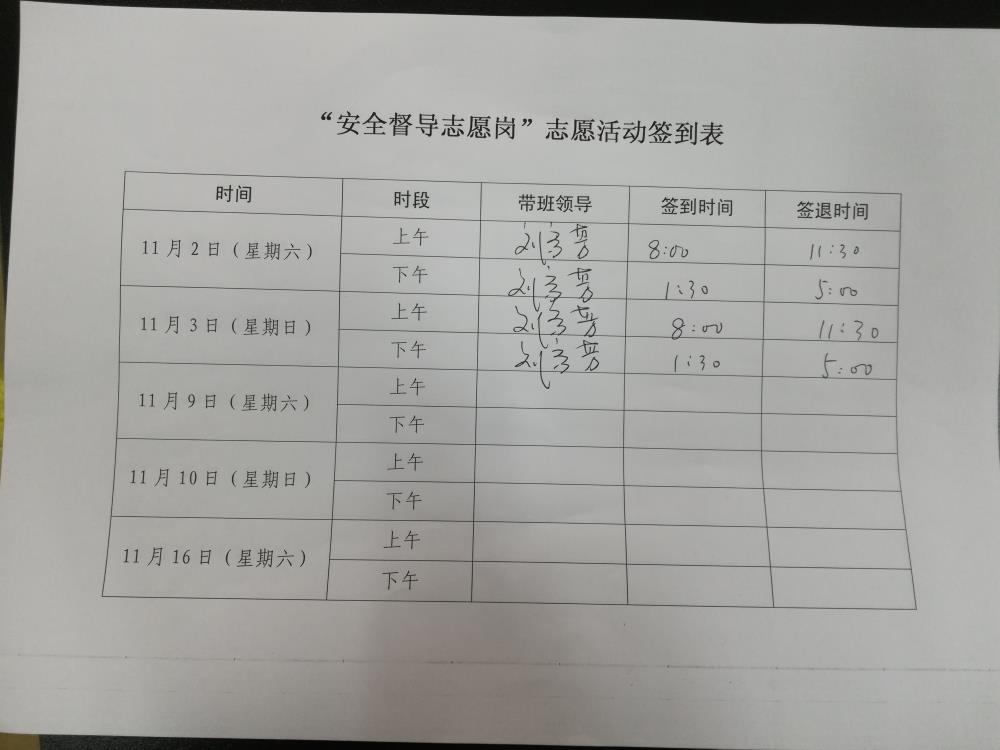 “安全督导志愿岗”志愿活动签到表
时间 时段 带班领导 签到时间 签退时间
11月2日（星期六） 上午 刘 芳 8:00 11:30
下午 刘 芳 1:30 5:00
11月3日（星期日） 上午 刘 芳 8:00 11:30
下午 刘 芳 1:30 5:00
11月9日（星期六） 上午
下午
11月10日（星期日） 上午
下午
11月16日（星期六） 上午
下午